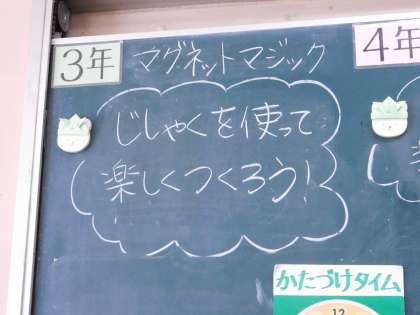 3年 マグネットマジック
じしゃくを使って
楽しくつくろう!
4年
かたづけタイム
12